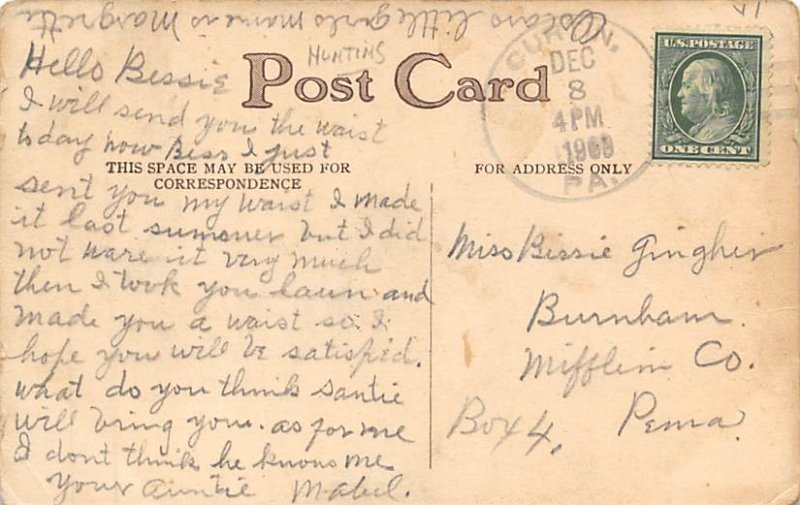 Oscars little girls name is Margrett
HUNTING
Hello Bessie
Post Card
I will send you the waist
today now Bess I just
THIS SPACE MAY BE USED FOR
CORRESPONDENCE
sent you my waist I made
it last summer but I did
not ware it very much
then I took you lawn and
made you a waist so I
hope you will be satisfied.
what do you think Santie
will bring you. as for me
I dont think he knows me
Your Auntie Mabel.
CURTIN,
DEC
8
4 PM
1909
PA.
U.S. POSTAGE
ONE CENT
FOR ADDRESS ONLY
Miss Bissie Gingher
Burnham.
Mifflin Co.
Box 4, Penna.